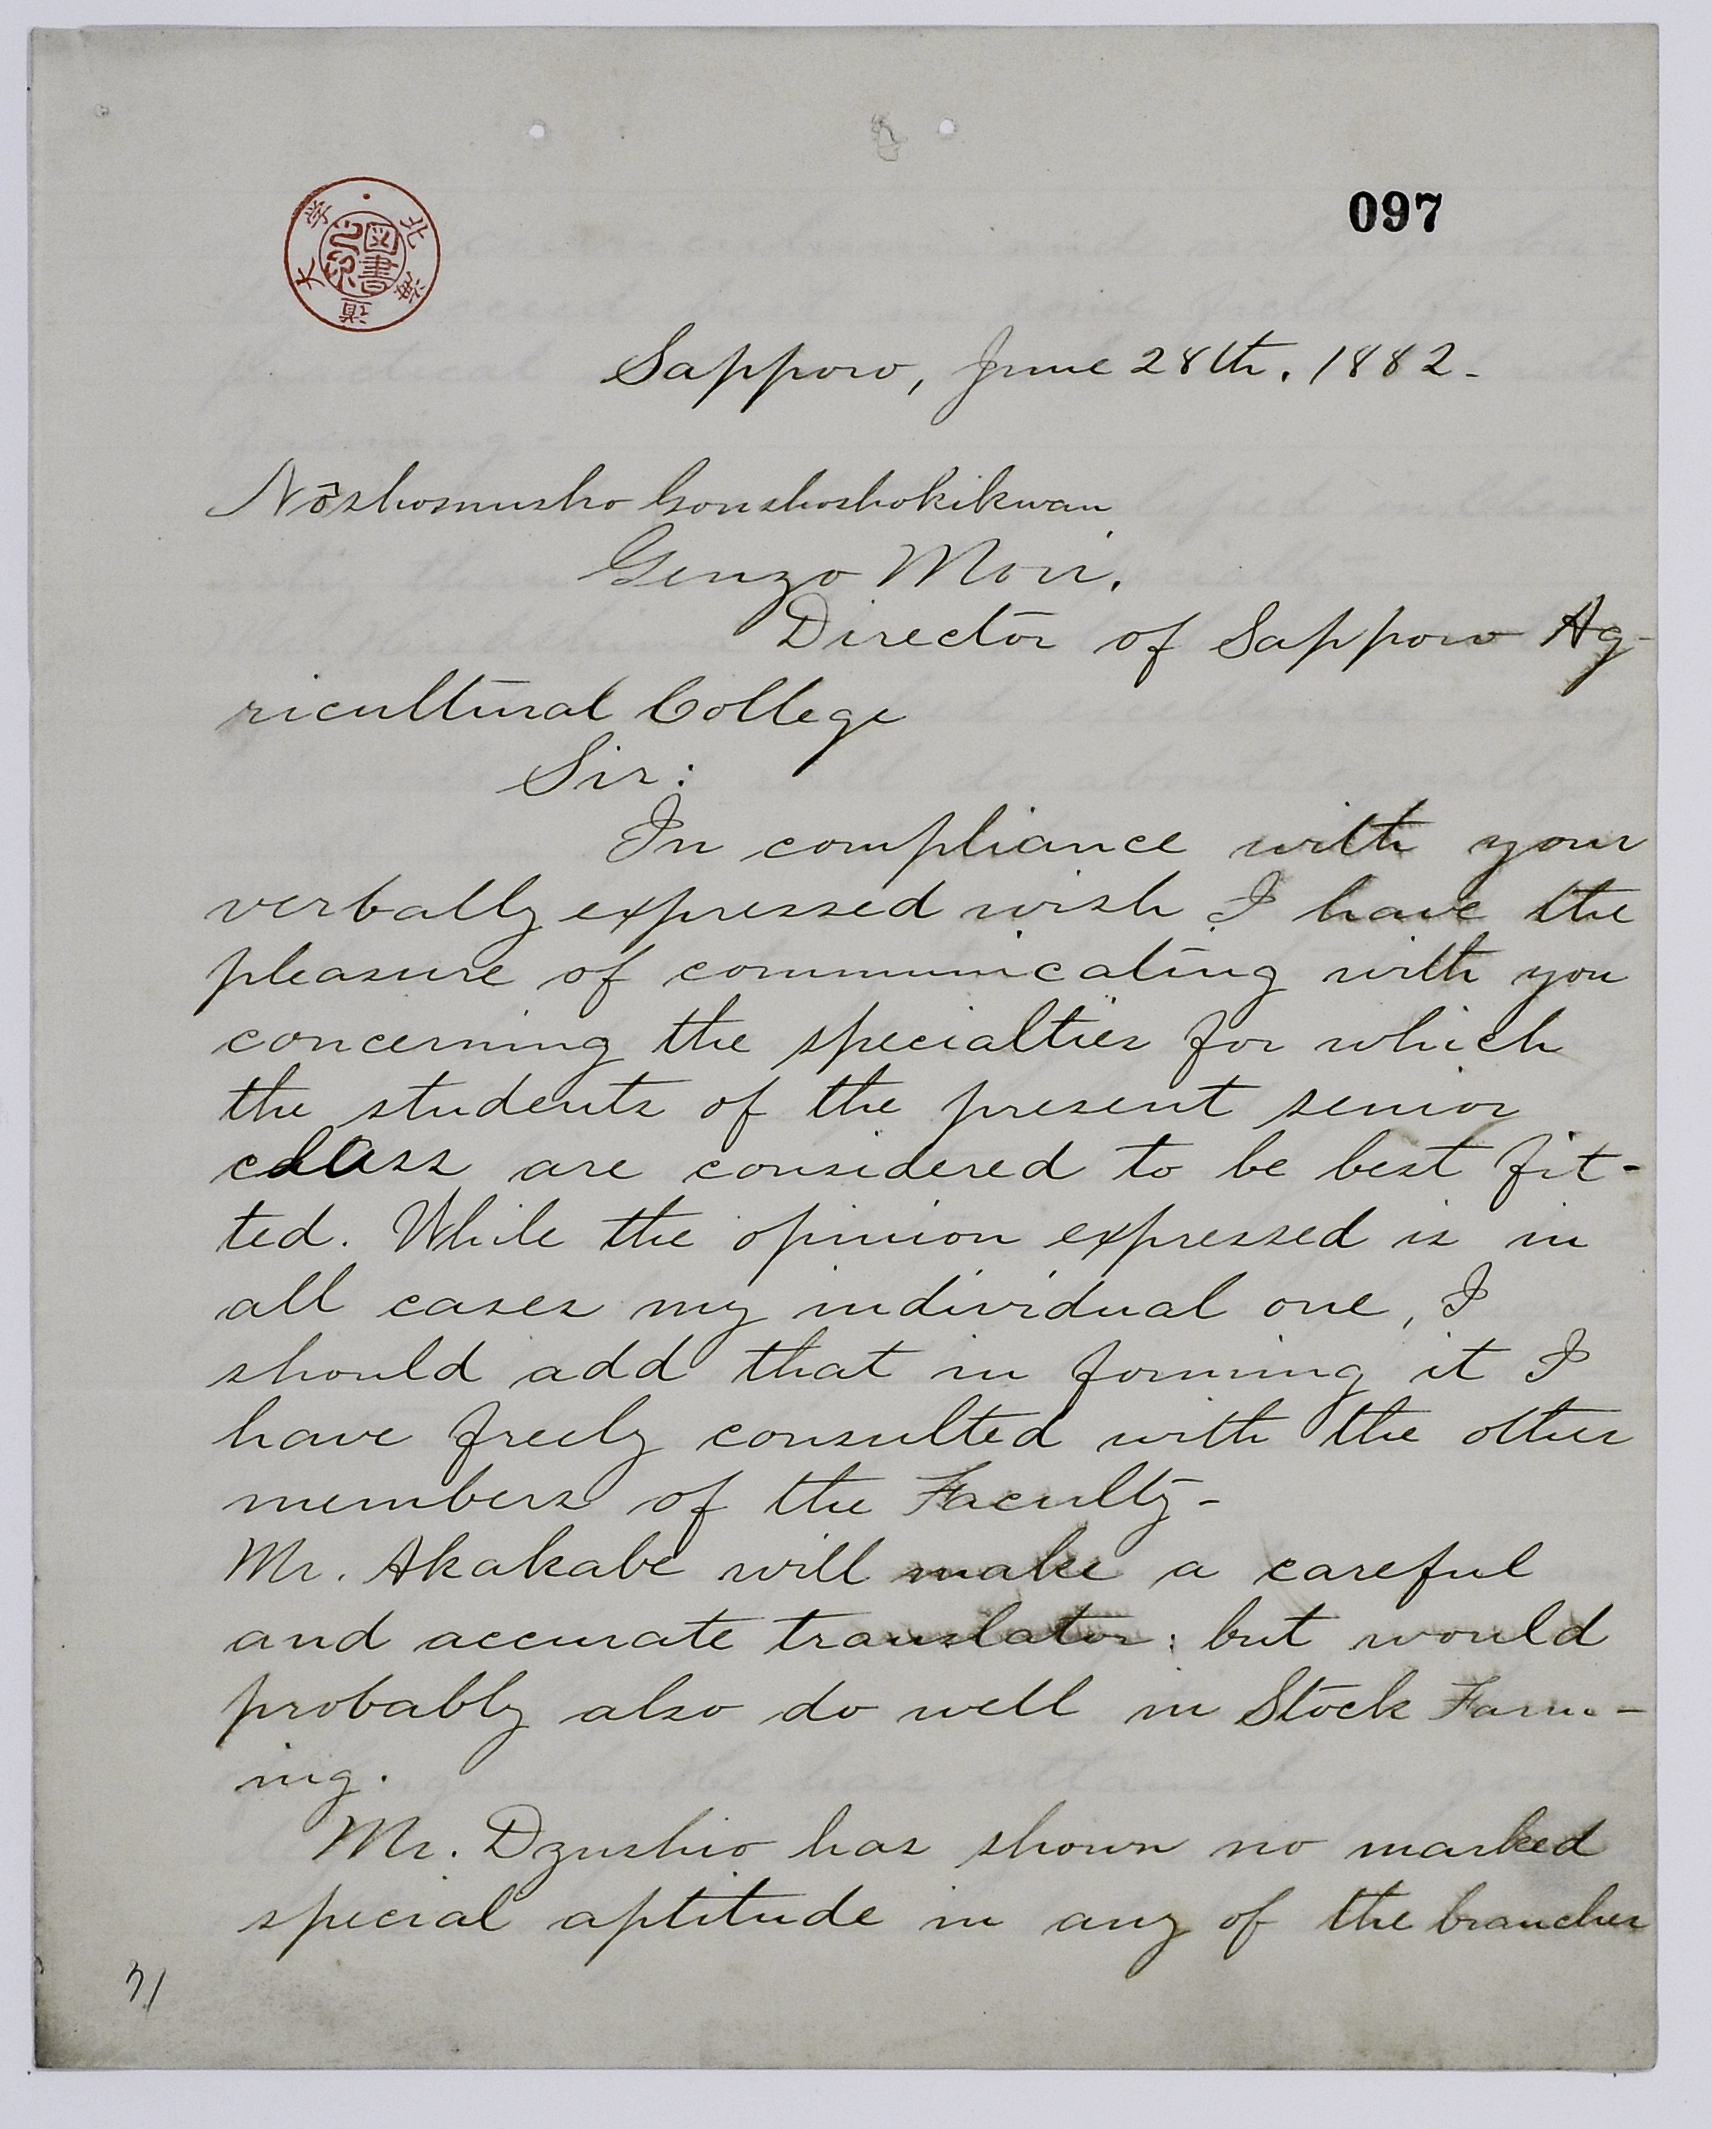 097
北海道大学
図書之印
Sapporo, June 28th. 1882.
Nōshomusho Gonshoshokikwan
Genzo Mori.
Director of Sapporo Ag-
ricultural College
Sir:
In compliance with your
verbally expressed wish I have the
pleasure of communicating with you
concerning the specialties for which
the students of the present senior
class are considered to be best fit-
ted. While the opinion expressed is in
all cases my individual one, I
should add that in forming it I
have freely consulted with the other
members of the Faculty-
Mr. Akakabe will make a careful
and accurate translator; but would
probably also do well in Stock Farm-
ing.
Mr. Dzushio has shown no marked
special aptitude in any of the branches
31